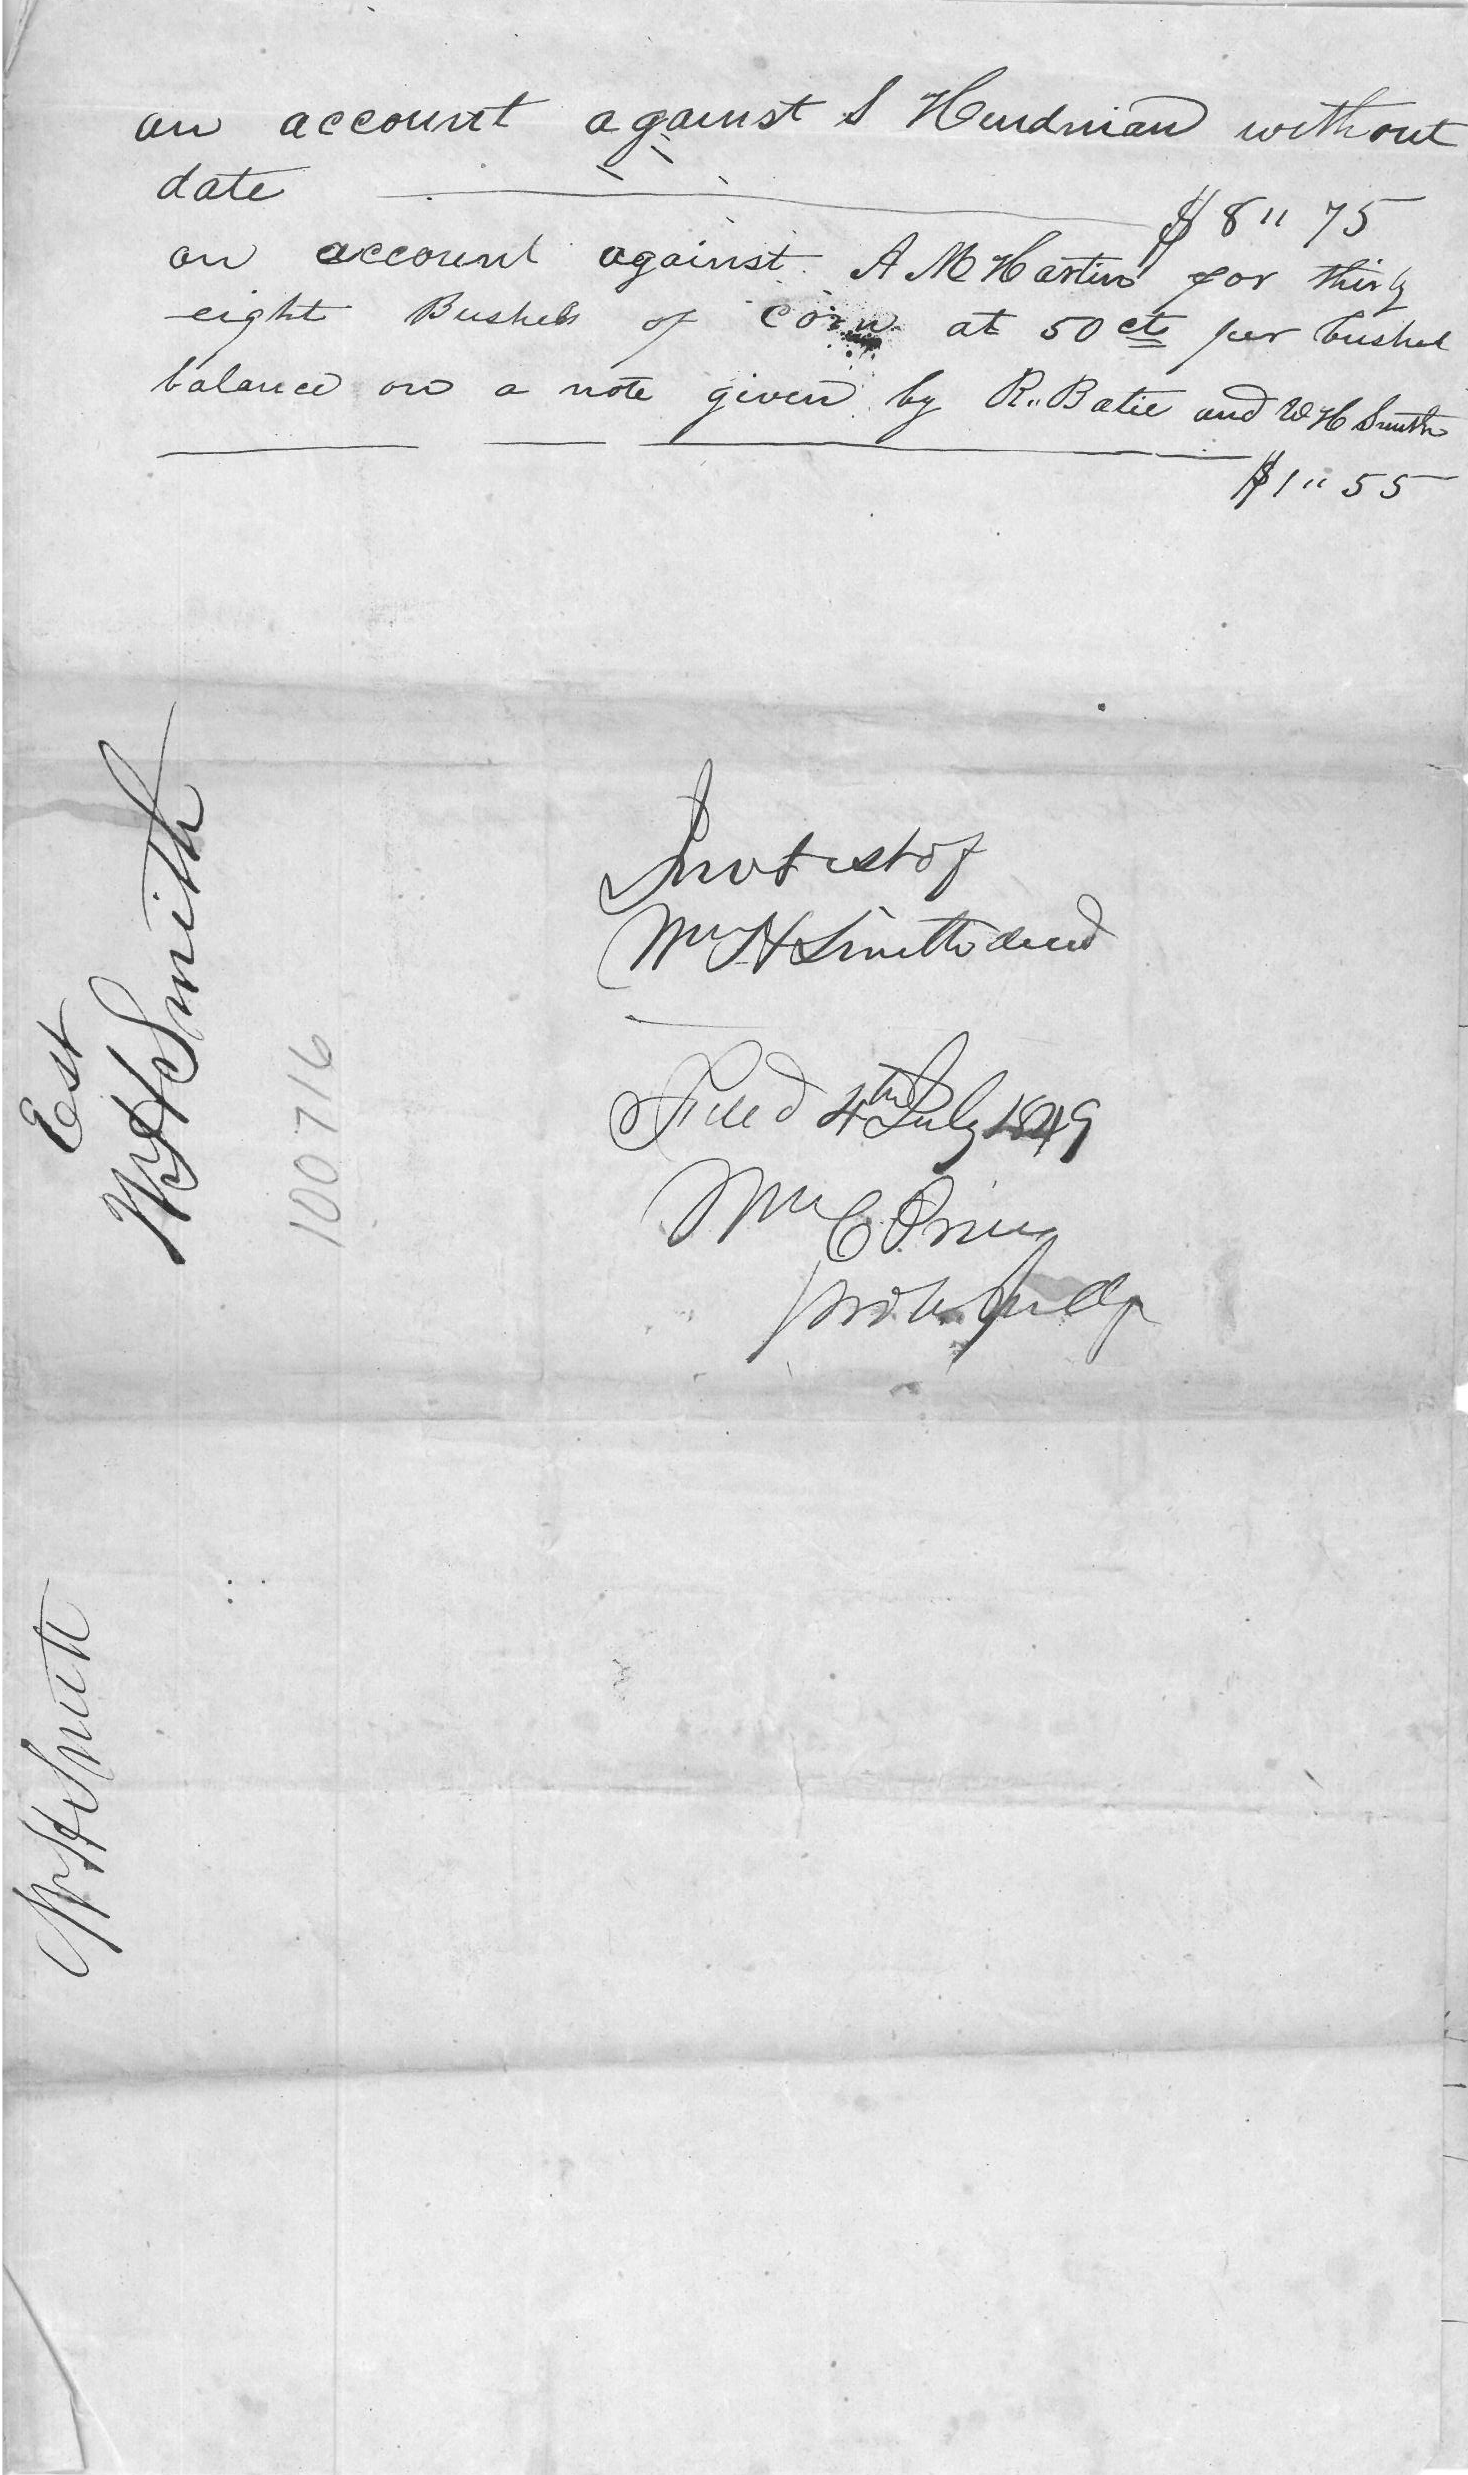 an account against S Hurdman without
date $8" 75
an account against A M Hartin for thirty
eight Bushels of corn at 50 cts per bushel
balance on a note given by R" Batie and W H Smith
$1" 55
Inv & est of
Wm H Smith decd
Filed 4th July 1849
Wm C
Prob Judge
Est
W H Smith
100716
W H Smith